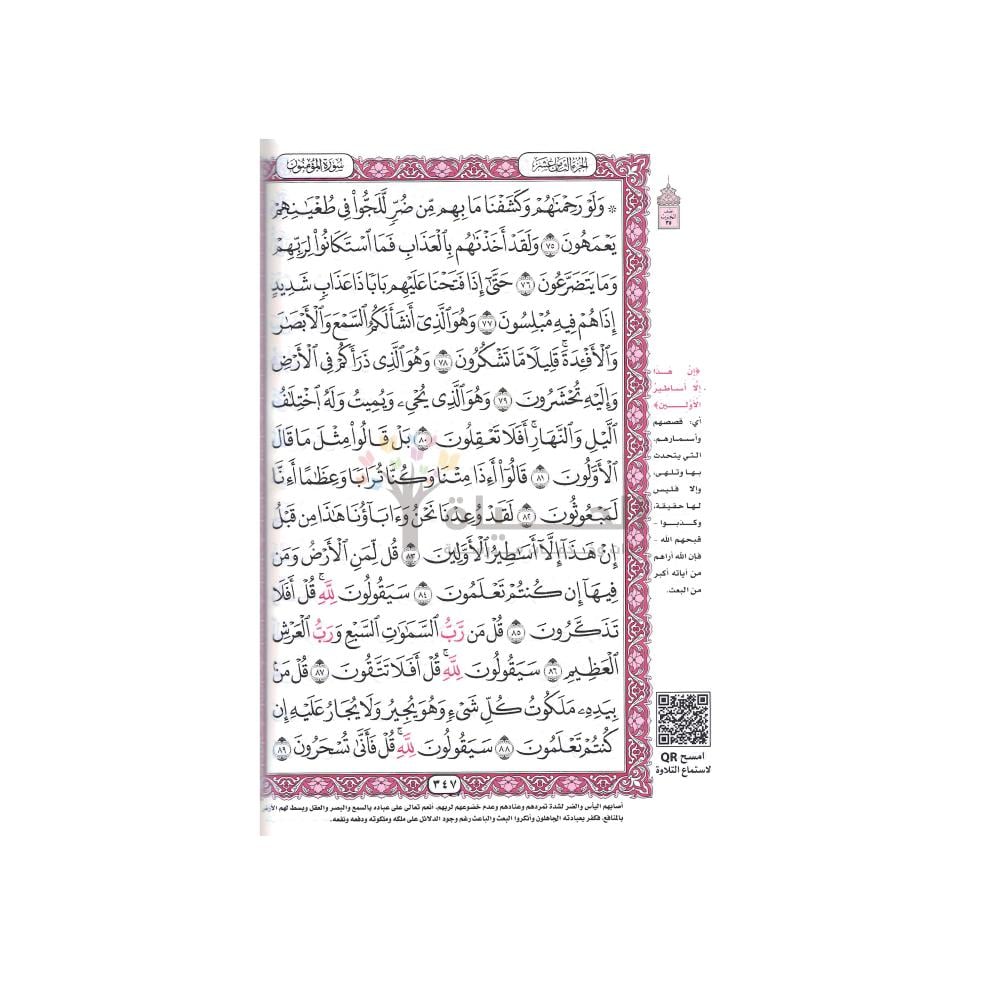 سُورَةُ المُؤْمِنُونَ
الجُزْءُ الثَّامِنَ عَشَرَ
۞ وَلَوْ رَحِمْنَٰهُمْ وَكَشَفْنَا مَا بِهِم مِّن ضُرٍّ لَّلَجُّوا۟ فِى طُغْيَٰنِهِمْ
يَعْمَهُونَ ٧٥ وَلَقَدْ أَخَذْنَٰهُم بِٱلْعَذَابِ فَمَا ٱسْتَكَانُوا۟ لِرَبِّهِمْ
وَمَا يَتَضَرَّعُونَ ٧٦ حَتَّىٰٓ إِذَا فَتَحْنَا عَلَيْهِم بَابًا ذَا عَذَابٍ شَدِيدٍ
إِذَا هُمْ فِيهِ مُبْلِسُونَ ٧٧ وَهُوَ ٱلَّذِىٓ أَنشَأَ لَكُمُ ٱلسَّمْعَ وَٱلْأَبْصَٰرَ
وَٱلْأَفْـِٔدَةَ ۚ قَلِيلًا مَّا تَشْكُرُونَ ٧٨ وَهُوَ ٱلَّذِى ذَرَأَكُمْ فِى ٱلْأَرْضِ
وَإِلَيْهِ تُحْشَرُونَ ٧٩ وَهُوَ ٱلَّذِى يُحْىِۦ وَيُمِيتُ وَلَهُ ٱخْتِلَٰفُ
ٱلَّيْلِ وَٱلنَّهَارِ ۚ أَفَلَا تَعْقِلُونَ ٨٠ بَلْ قَالُوا۟ مِثْلَ مَا قَالَ
ٱلْأَوَّلُونَ ٨١ قَالُوٓا۟ أَءِذَا مِتْنَا وَكُنَّا تُرَابًا وَعِظَٰمًا أَءِنَّا
لَمَبْعُوثُونَ ٨٢ لَقَدْ وُعِدْنَا نَحْنُ وَءَابَآؤُنَا هَٰذَا مِن قَبْلُ
إِنْ هَٰذَآ إِلَّآ أَسَٰطِيرُ ٱلْأَوَّلِينَ ٨٣ قُل لِّمَنِ ٱلْأَرْضُ وَمَن
فِيهَآ إِن كُنتُمْ تَعْلَمُونَ ٨٤ سَيَقُولُونَ لِلَّهِ ۚ قُلْ أَفَلَا
تَذَكَّرُونَ ٨٥ قُلْ مَن رَّبُّ ٱلسَّمَٰوَٰتِ ٱلسَّبْعِ وَرَبُّ ٱلْعَرْشِ
ٱلْعَظِيمِ ٨٦ سَيَقُولُونَ لِلَّهِ ۚ قُلْ أَفَلَا تَتَّقُونَ ٨٧ قُلْ مَنۢ
بِيَدِهِۦ مَلَكُوتُ كُلِّ شَىْءٍ وَهُوَ يُجِيرُ وَلَا يُجَارُ عَلَيْهِ إِن
كُنتُمْ تَعْلَمُونَ ٨٨ سَيَقُولُونَ لِلَّهِ ۚ قُلْ فَأَنَّىٰ تُسْحَرُونَ ٨٩
٣٤٧
الحزب
٣٥
﴿إن هذا
إلا أساطير
الأولين﴾
أي: قصصهم
وأسمارهم،
التي يتحدث
بها وتلهى،
وإلا فليس
لها حقيقة،
وكذبوا -
قبحهم الله -
فإن الله أراهم
من آياته أكبر
من البعث.
امسح QR
لاستماع التلاوة
أصابهم اليأس والضر لشدة تمردهم وعنادهم وعدم خضوعهم لربهم. أنعم تعالى على عباده بالسمع والبصر والعقل وبسط لهم الأرض
بالمنافع، فكفر بعبادته الجاهلون وأنكروا البعث والباعث رغم وجود الدلائل على ملكه وملكوته ودفعه ونفعه.